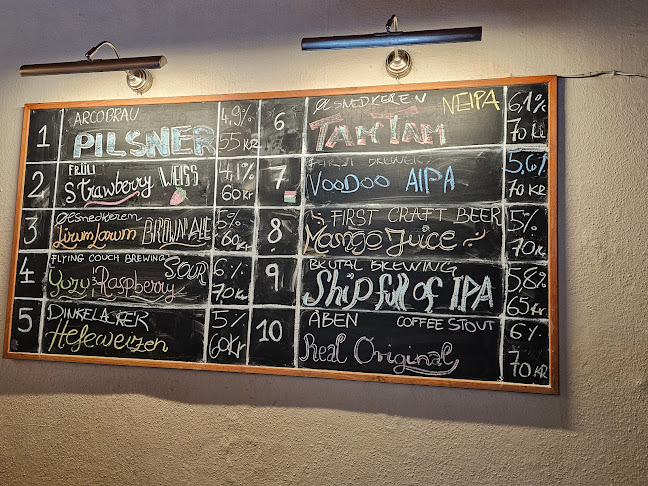 1
ARCOBRÄU
PILSNER
4,9%
55 KR
2
FRÜLI
Strawberry WEISS
4,1%
60 KR
3
Ølsnedkeren
Lirum Larum BROWN ALE
5%
60KR
4
FLYING COUCH BREWING
SOUR
Yuzu & Raspberry
6%
70 KR
5
DINKELACKER
Hefeweizen
5%
60KR
6
ØLSNEDKEREN NEIPA
TAM TAM
6,1%
70 KR
7
VOODOO AIPA
5,6%
70 KR
8
FIRST CRAFT BEER
Mango Juice
5%
70 KR
9
BRUTAL BREWING
Ship full of IPA
5,8%
65 KR
10
ABEN COFFEE STOUT
Real Original
6%
70 KR